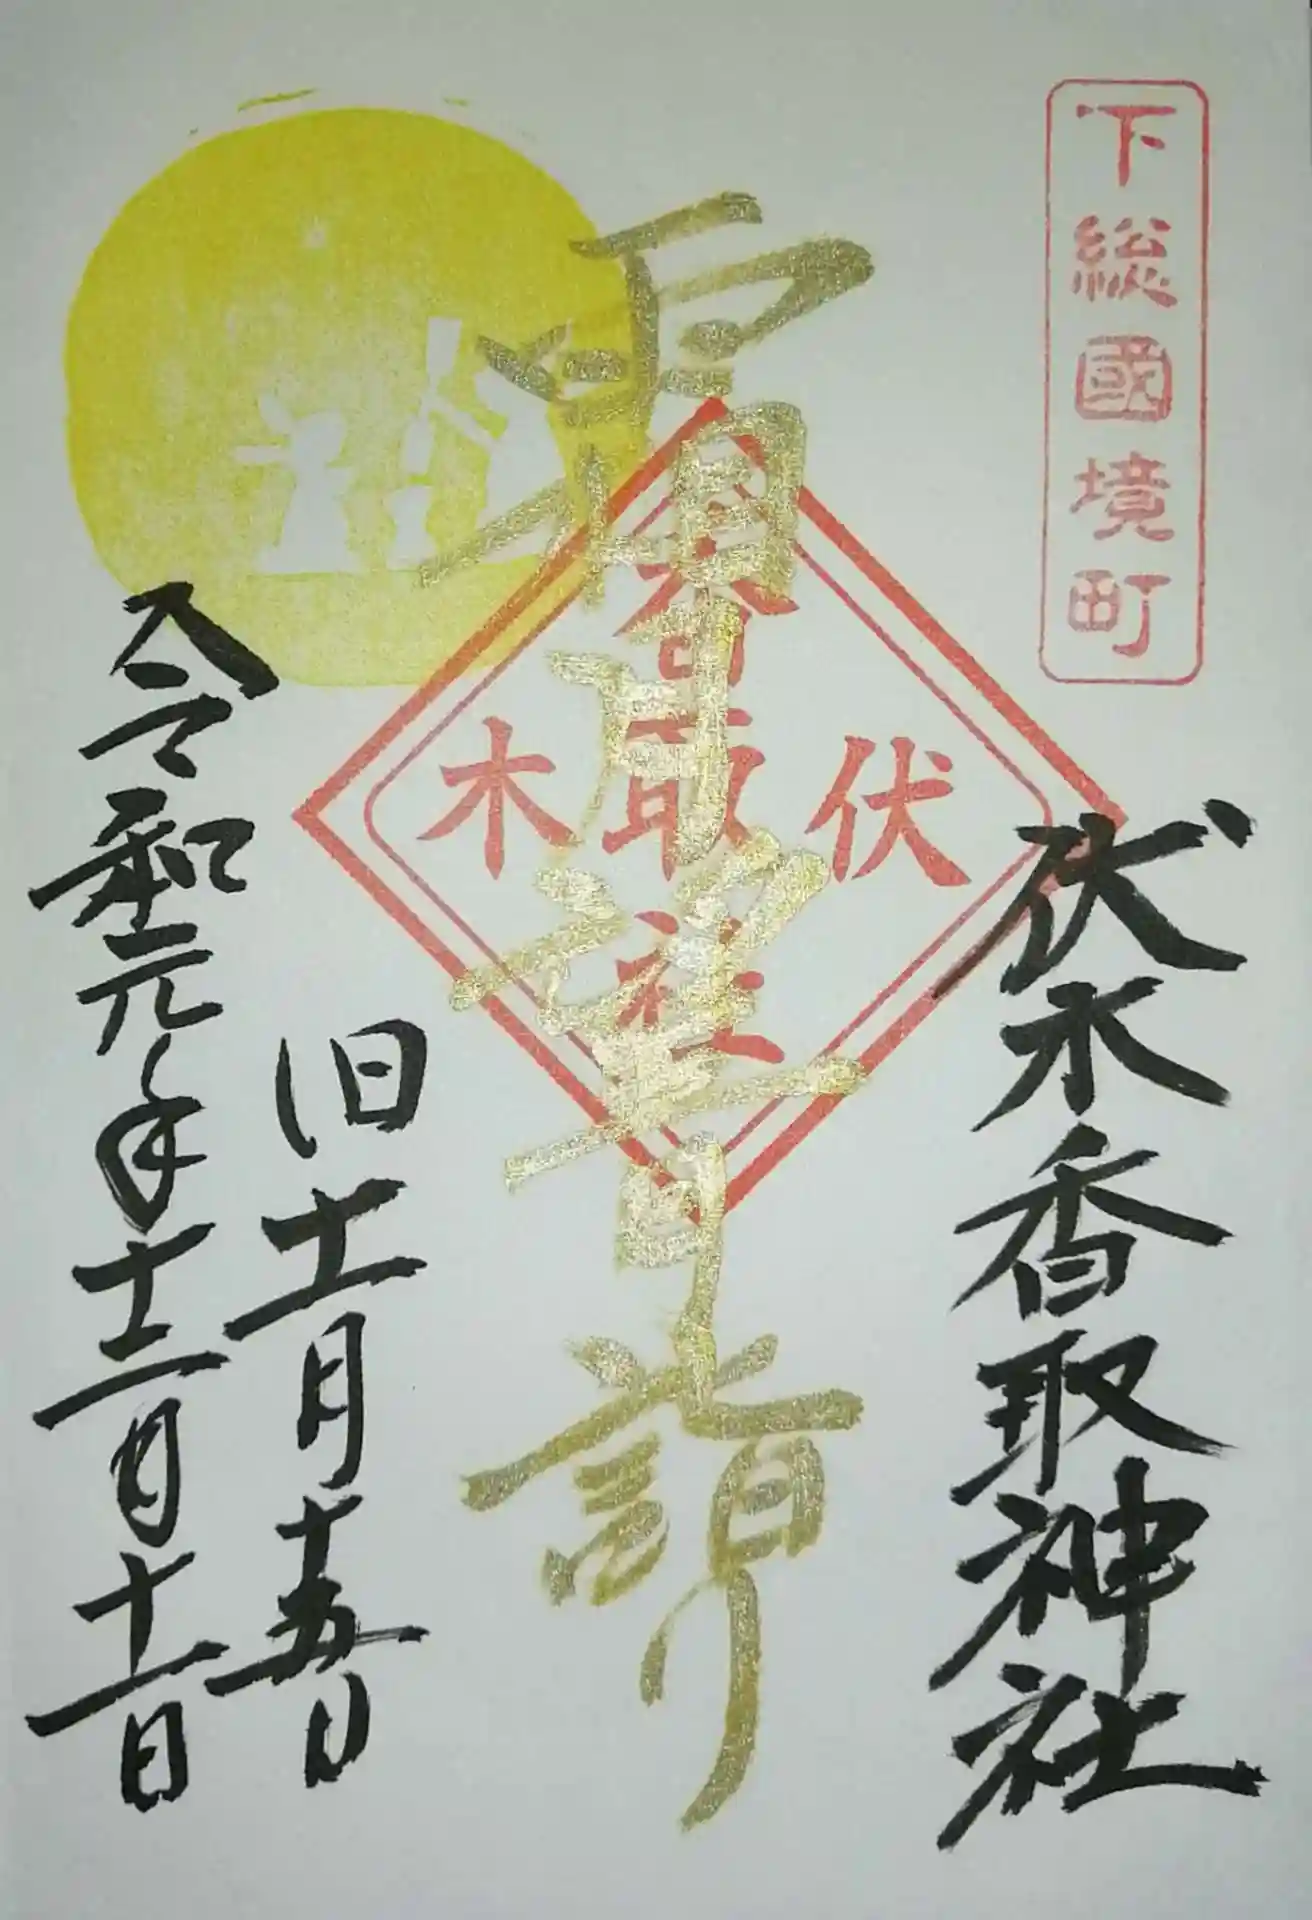 下総國境町
伏木香取神社
伏木
香取社
霜月望月詣
旧十一月十五日
令和元年十二月十一日